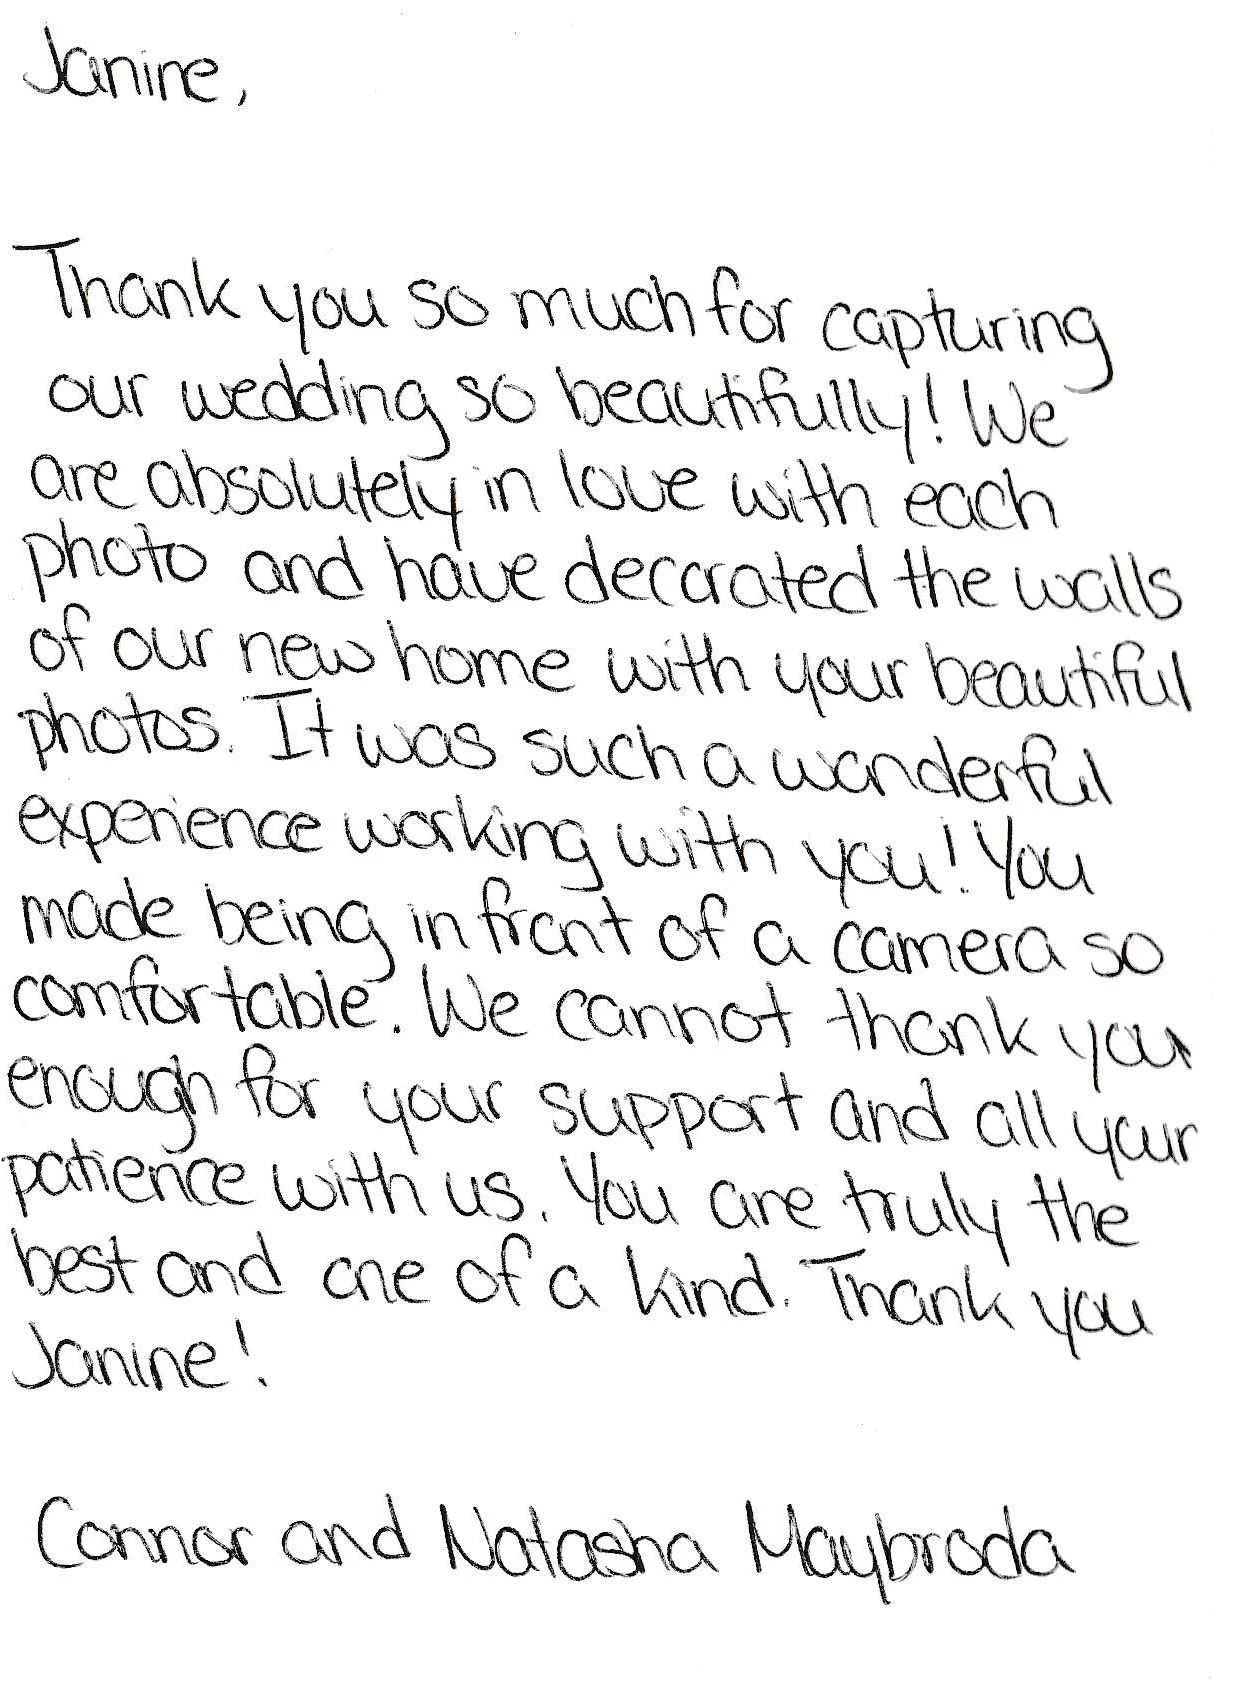 Janine,
Thank you so much for capturing
our wedding so beautifully! We
are absolutely in love with each
photo and have decorated the walls
of our new home with your beautiful
photos. It was such a wonderful
experience working with you! You
made being in front of a camera so
comfortable. We cannot thank you
enough for your support and all your
patience with us. You are truly the
best and one of a kind. Thank you
Janine!
Connor and Natasha Maybroda